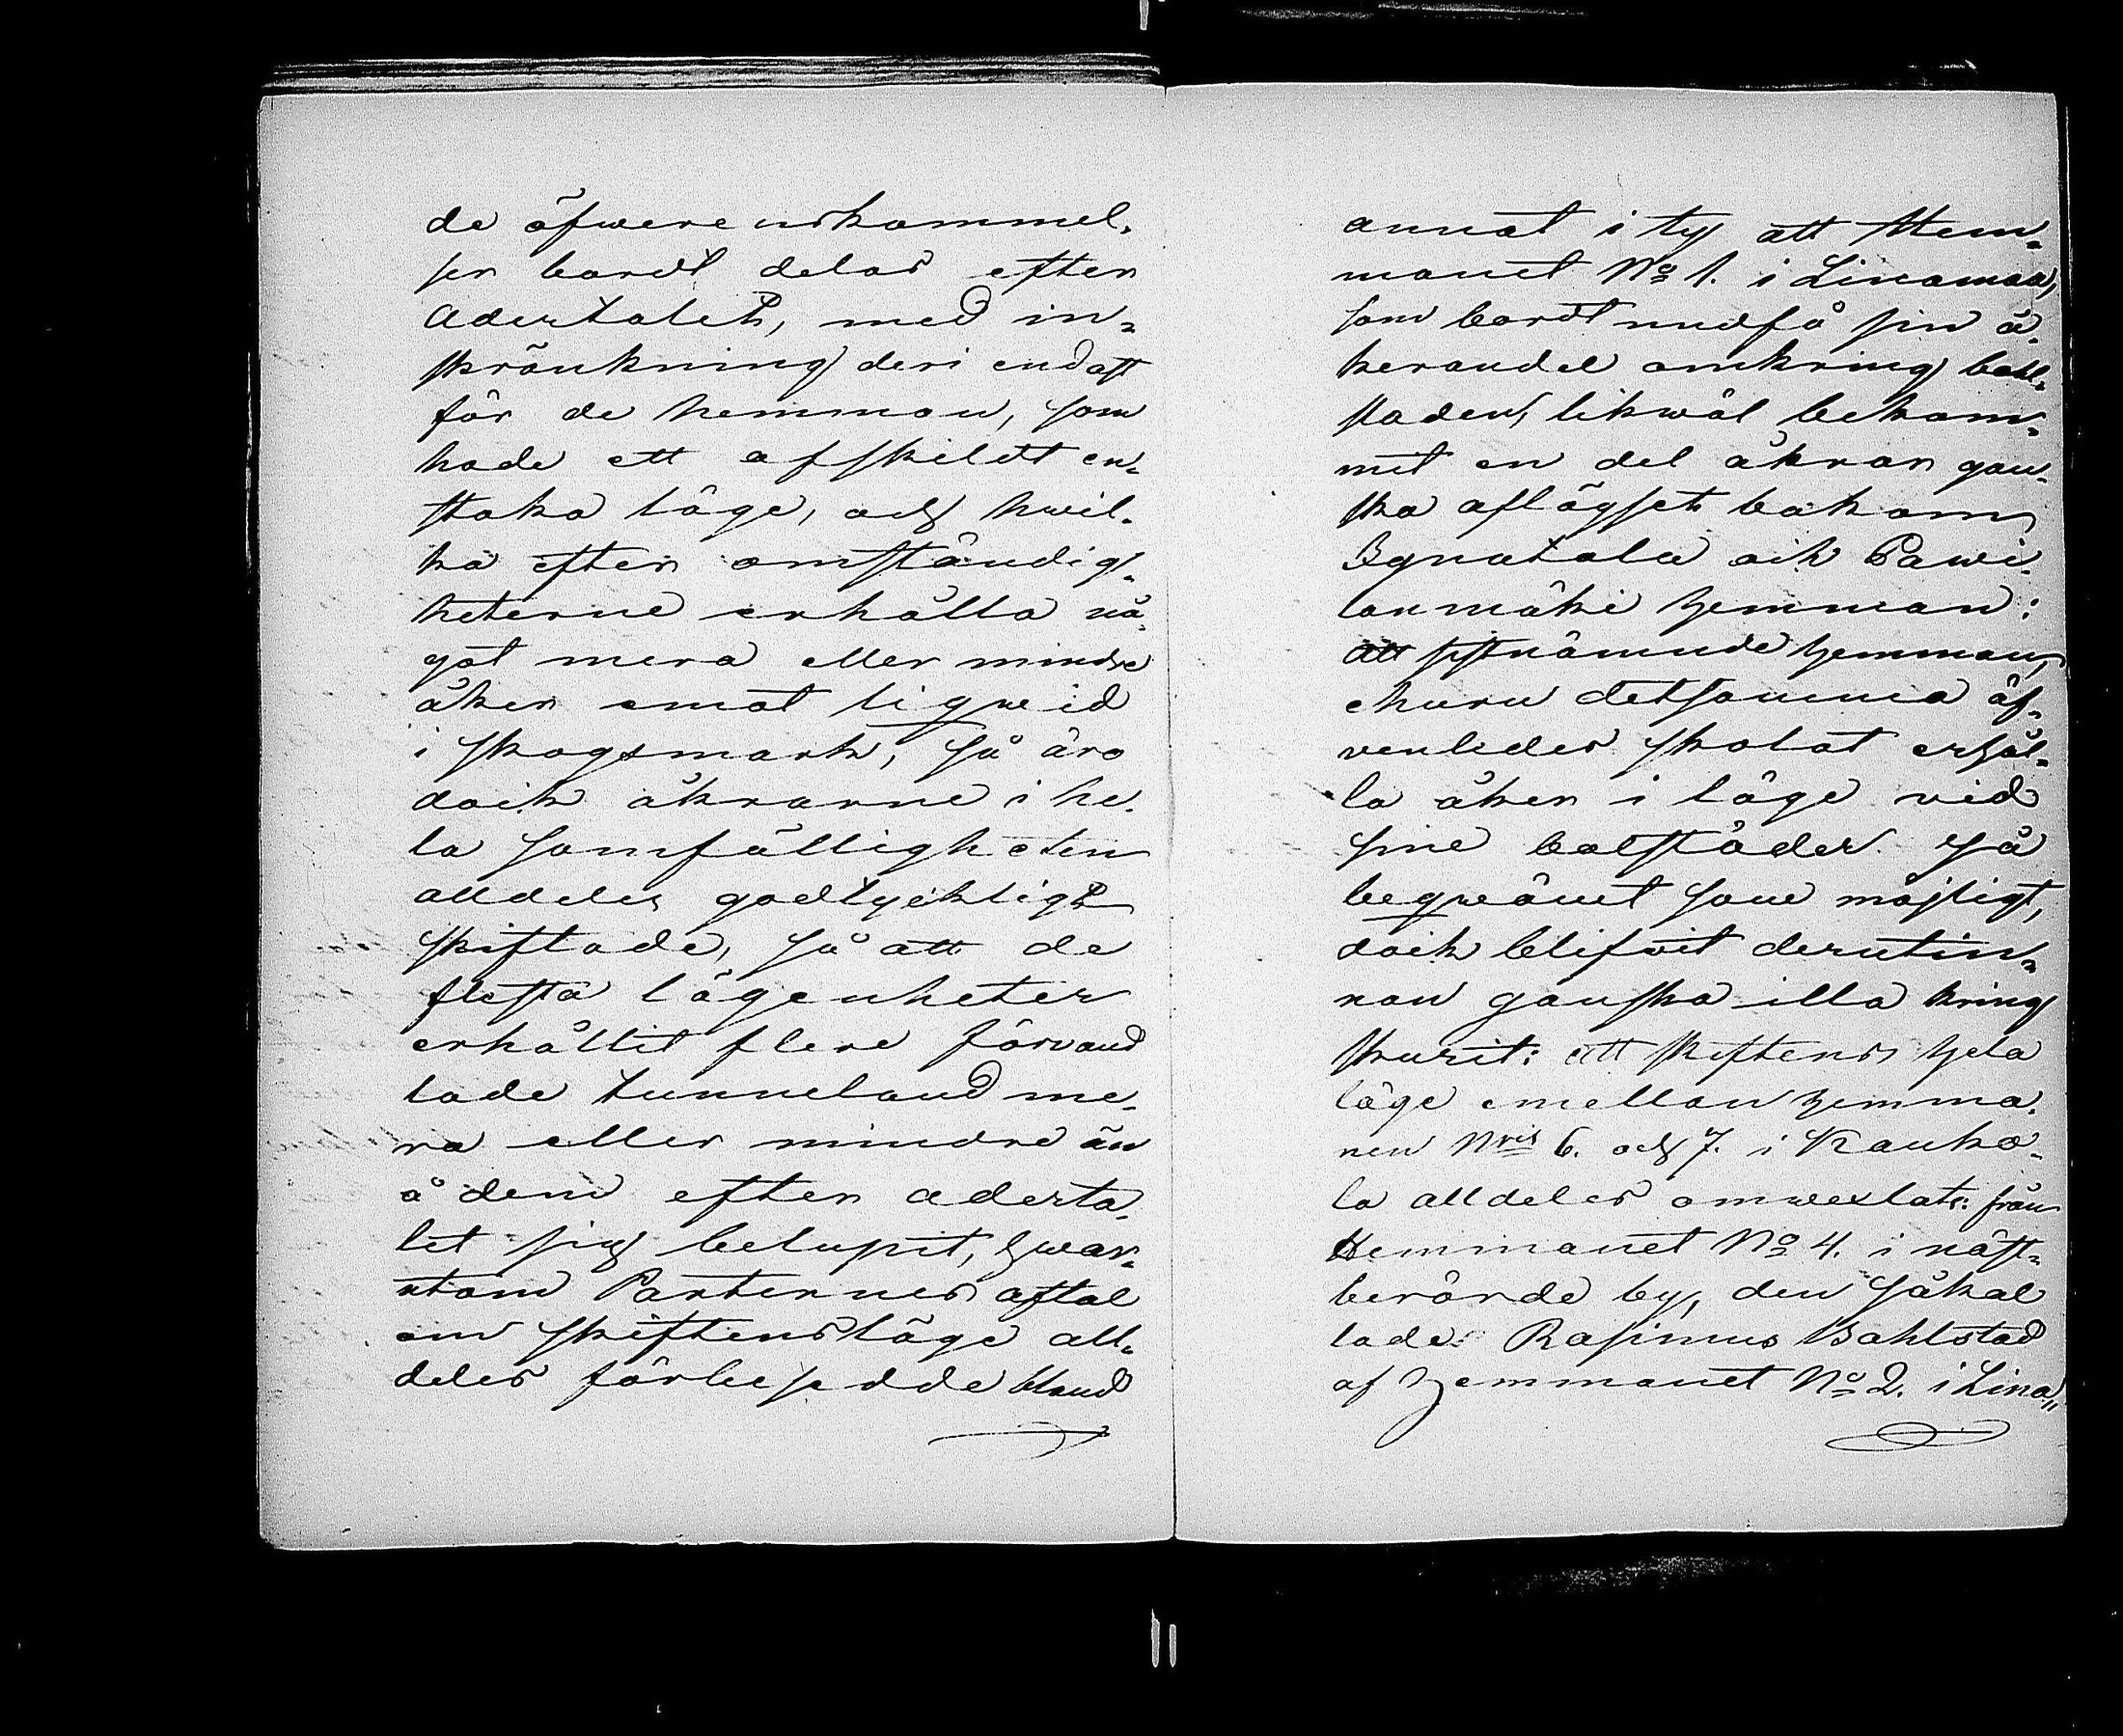 de öfwerenskommel-
ser bordt delas efter
adertalet, med in-
skränkning deri endast
för de hemman, som
hade ett afskildt en-
staka läge, och hwil-
ka efter omständig-
heterne erhålla nå-
got mera eller mindre
åker emot liqweid
i skogsmark; så äro
dock åkrarne i he-
la samfälligheten
alldeles godtyckligt
skiftade, så att de
flesta lägenheter
erhållit flere förvand
lade tunneland me-
ra eller mindre än
å dem efter aderta-
let sig belupit, hwar-
utom Parternes aftal
om skiftensläge all-
deles förbisedde bland
annat i ty att Hem-
manet No 1. i Linamaa,
som bordt undfå sin å-
kerandel omkring bohl-
staden, likwäl bekom-
mit en del åkrar gan-
ska aflägset bakom
Ignatala och Pawi-
lanmäki hemman:
att sistnämnde hemman,
ehuru detsamma äf-
venledes skolat erhål-
la åker i läge vid
sine bolstäder så
beqwämt som möjligt,
dock blifvit derutin-
nan ganska illa kring
skurit: att skiftens hela
läge emellan hemma-
nen Nris 6. och 7. i Kauko-
la alldeles omwexlats: från
Hemmanet No 4. i näst-
berörde by, den såkal
lade Rasimus Bohlstad
af Hemmanet No 2. i Lina-